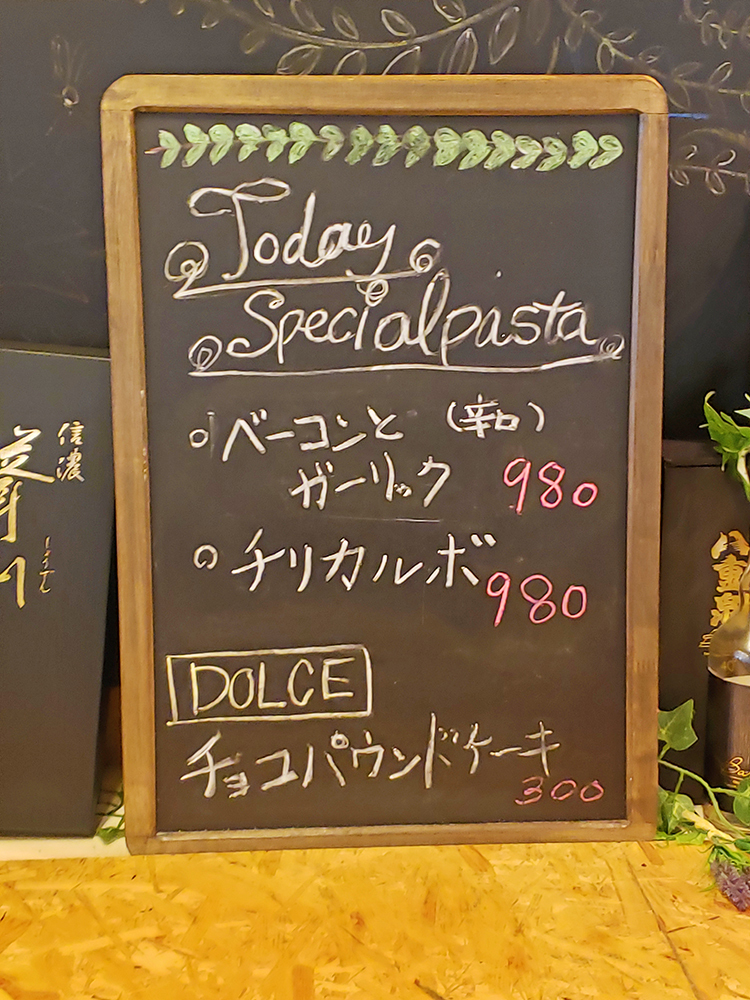 Today
Special pasta
ベーコンと (辛口)
ガーリック 980
チリカルボ
980
DOLCE
チョコパウンドケーキ
300
信濃